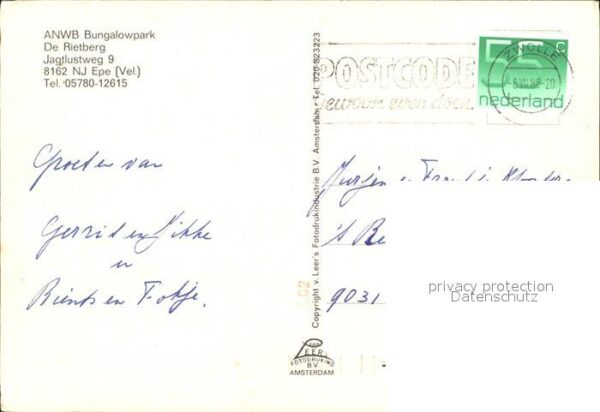 ANWB Bungalowpark
De Rietberg
Jagtlustweg 9
8162 NJ Epe (Vel.)
Tel. 05780-12615
Groeten van
Gerrit en Sikke
en
Rients en Fokje.
Copyright v. Leer's Fotodrukindustrie B.V. Amsterdam • Tel. 020-823223
VAN
LEER
FOTODRUKIND
BV
AMSTERDAM
POSTCODE
even doen
ZWOLLE
55 c
nederland
's Be
9031
privacy protection
Datenschutz